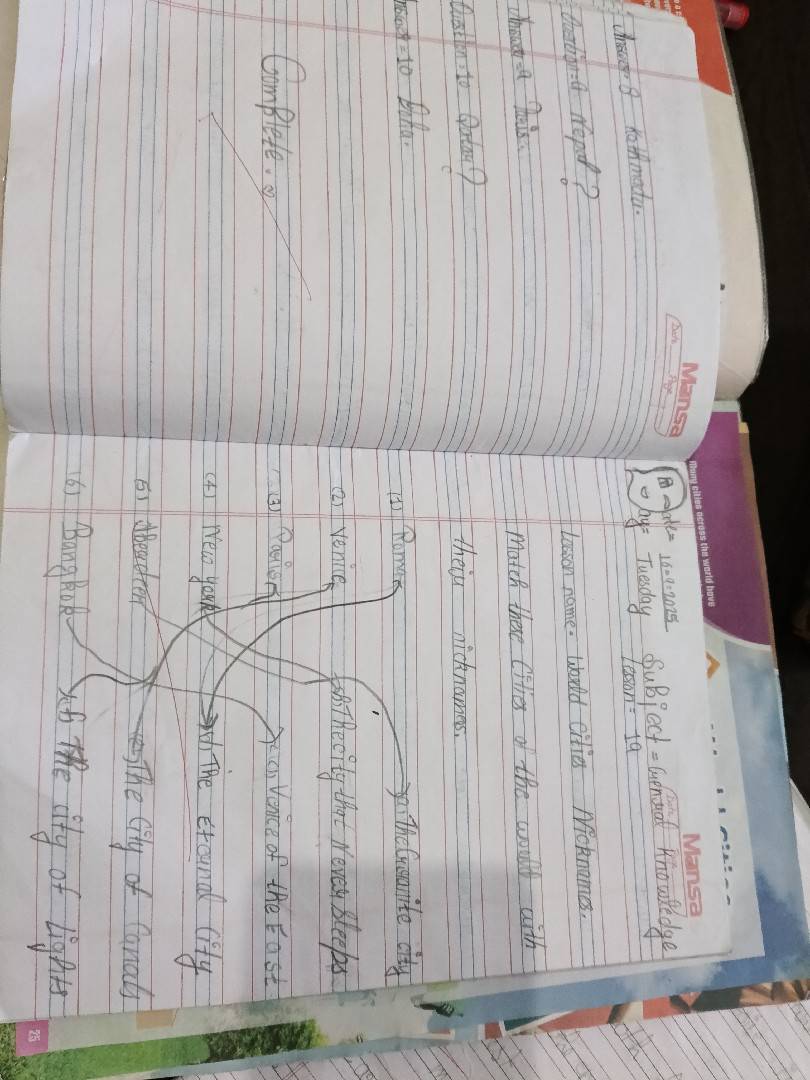 Answer = 8 Kathmadu.
Question = 9 Nepal?
Answer = 9
Question 10
Answer = 10
Complete.
Mansa
Date
Page
Many cities across the world have
Mansa
Date = 16-9-2025 Subject = General Knowledge
Day = Tuesday Lesson = 19
Lesson name = World Cities Nicknames.
Match these Cities of the world with
their nicknames.
(1) Rome a) The Granite City
(2) Venice b) The city that Never Sleeps
(3) c) Venice of the East
(4) New York d) The Eternal City
(5) e) The City of Canals
(6) Bangkok f) The City of Lights
25